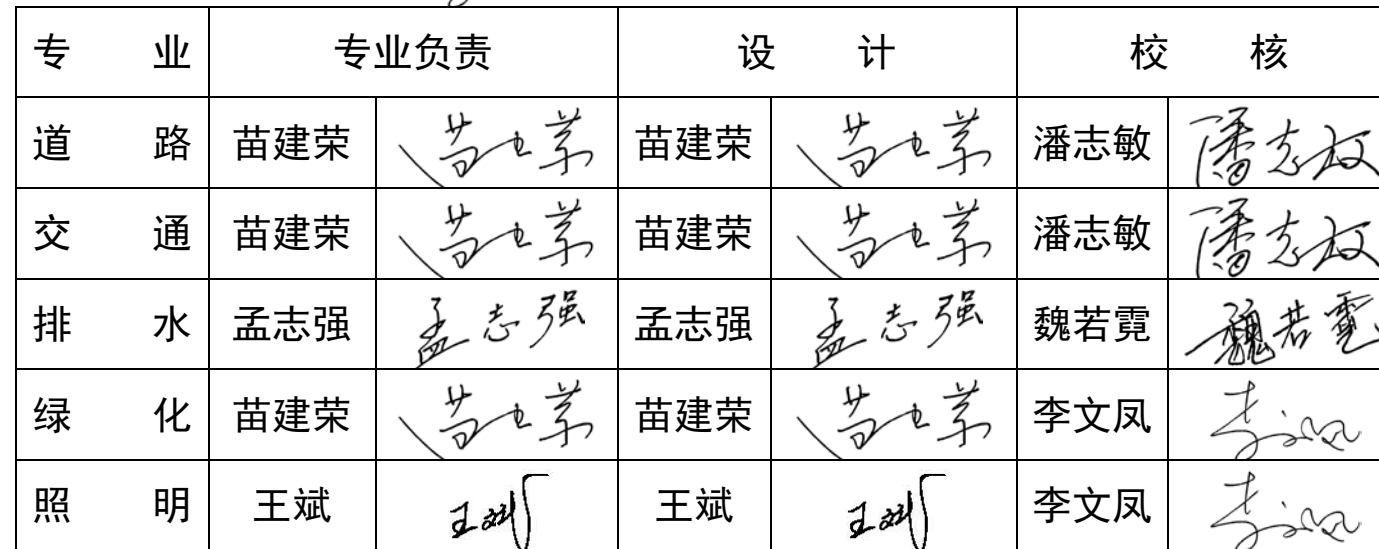 专业 专业负责 设计 校核
道路 苗建荣 苗建荣 苗建荣 苗建荣 潘志敏 潘志敏
交通 苗建荣 苗建荣 苗建荣 苗建荣 潘志敏 潘志敏
排水 孟志强 孟志强 孟志强 孟志强 魏若霓 魏若霓
绿化 苗建荣 苗建荣 苗建荣 苗建荣 李文凤 李文凤
照明 王斌 王斌 王斌 王斌 李文凤 李文凤